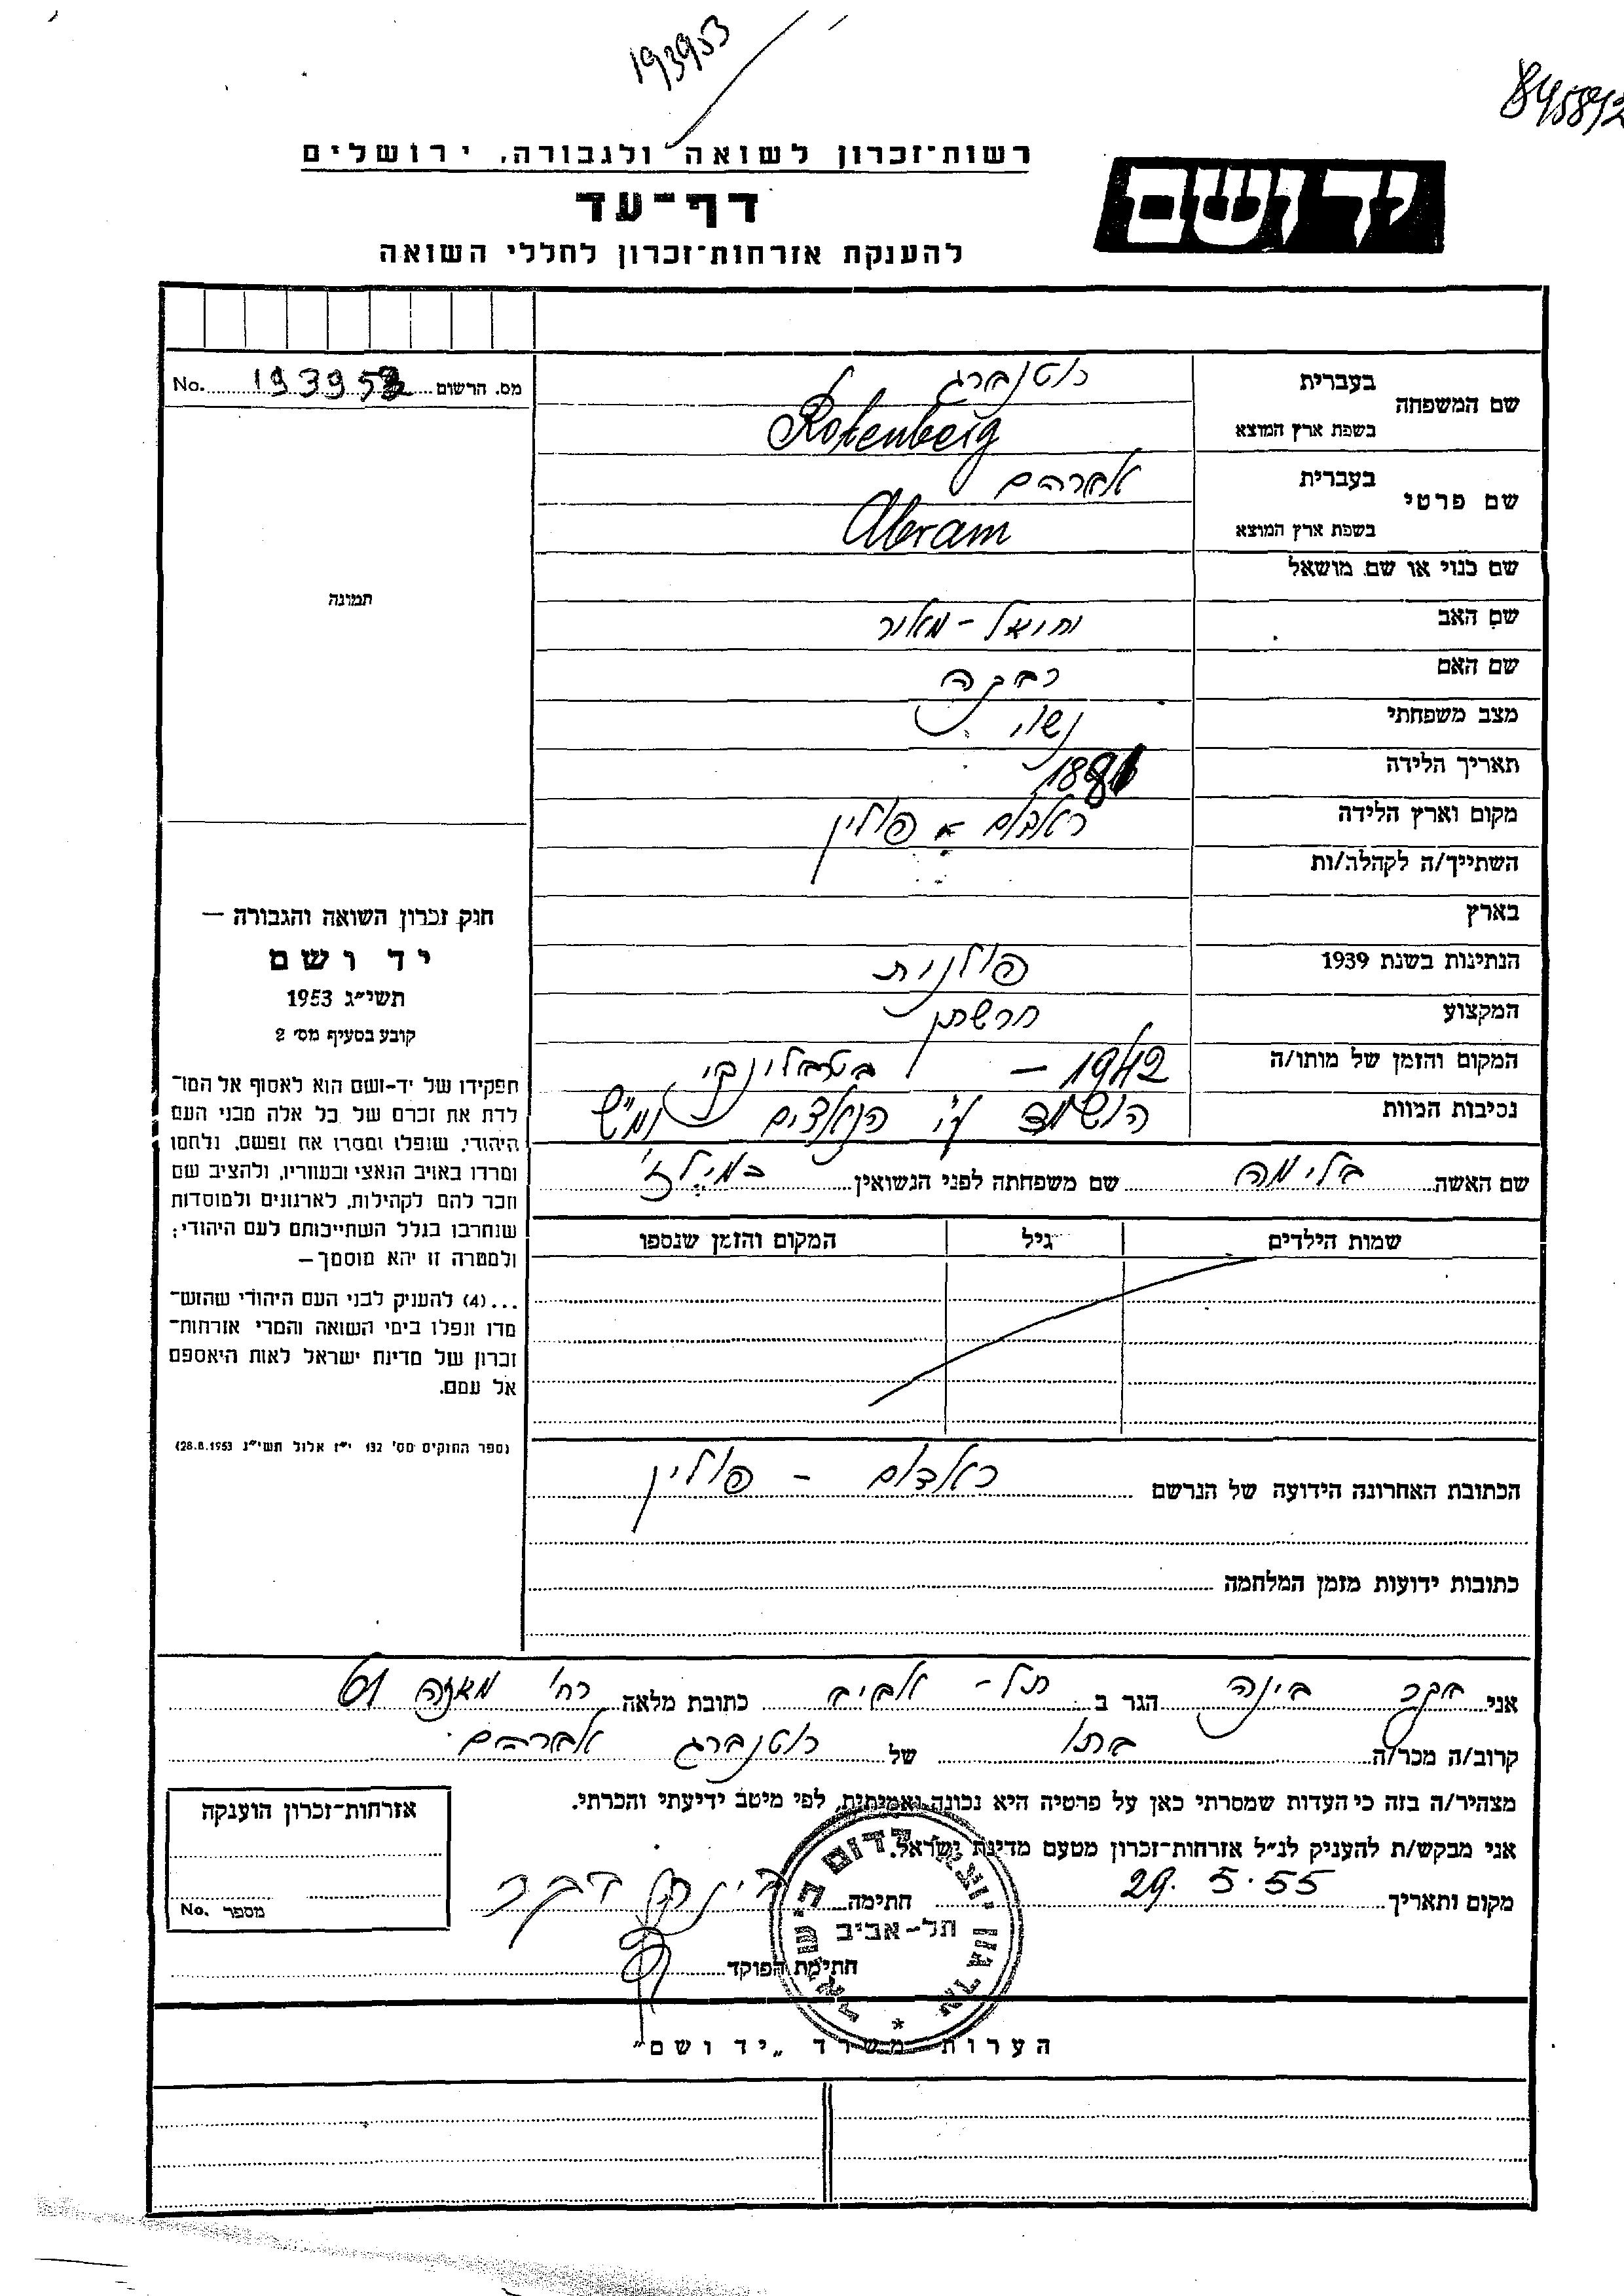 193953
845892
רשות־זכרון לשואה ולגבורה, ירושלים
יד ושם
דף־עד
להענקת אזרחות־זכרון לחללי השואה
מס. הרשום 193953 No.
שם המשפחה
בעברית רוטנברג
בשפת ארץ המוצא Rotenberg
שם פרטי
בעברית אברהם
בשפת ארץ המוצא Abram
שם כנוי או שם מושאל
תמונה
שם האב מאיר
שם האם רבקה
מצב משפחתי נשוי
תאריך הלידה
מקום וארץ הלידה ראדום - פולין
השתייך/ה לקהלה/ות
בארץ
הנתינות בשנת 1939 פולנית
המקצוע חרשתן
המקום והזמן של מותו/ה 1942 – בטרבלינקי
נסיבות המוות הושמד ע"י הנאצים ימ"ש
שם האשה בלימה שם משפחתה לפני הנשואין
שמות הילדים גיל המקום והזמן שנספו
הכתובת האחרונה הידועה של הנרשם ראדום - פולין
כתובות ידועות מזמן המלחמה
חוק זכרון השואה והגבורה —
יד ושם
תשי״ג 1953
קובע בסעיף מס׳ 2
תפקידו של יד-ושם הוא לאסוף אל המו־
לדת את זכרם של כל אלה מבני העם
היהודי, שנפלו ומסרו את נפשם, נלחמו
ומרדו באויב הנאצי ובעוזריו, ולהציב שם
וזכר להם לקהילות, לארגונים ולמוסדות
שנחרבו בגלל השתייכותם לעם היהודי;
ולמטרה זו יהא מוסמך —
...(4) להעניק לבני העם היהודי שהוש־
מדו ונפלו בימי השואה והמרי אזרחות־
זכרון של מדינת ישראל לאות היאספם
אל עמם.
(ספר החוקים מס׳ 132 י״ז אלול תשי״ג 28.8.1953)
אני בינה הגר ב תל-אביב כתובת מלאה רח' מאזה 61
קרוב/ה מכר/ה בתו של רוטנברג אברהם
מצהיר/ה בזה כי העדות שמסרתי כאן על פרטיה היא נכונה ואמיתית, לפי מיטב ידיעתי והכרתי.
אני מבקש/ת להעניק לנ״ל אזרחות־זכרון מטעם מדינת ישראל.
מקום ותאריך 29.5.55 חתימה
חתימת הפוקד
ארגון יוצאי רדום בישראל
תל-אביב
אזרחות־זכרון הוענקה
מספר No.
הערות משרד „יד ושם"